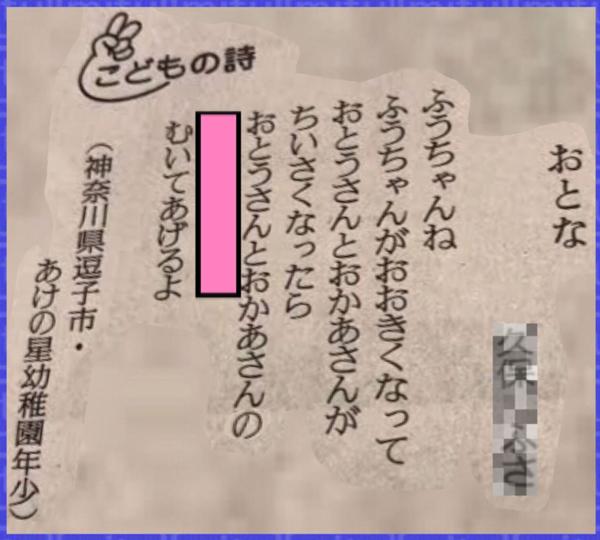 こどもの詩
おとな
ふうちゃんね
ふうちゃんがおおきくなって
おとうさんとおかあさんが
ちいさくなったら
おとうさんとおかあさんの
むいてあげるよ
（神奈川県逗子市・
あけの星幼稚園年少）